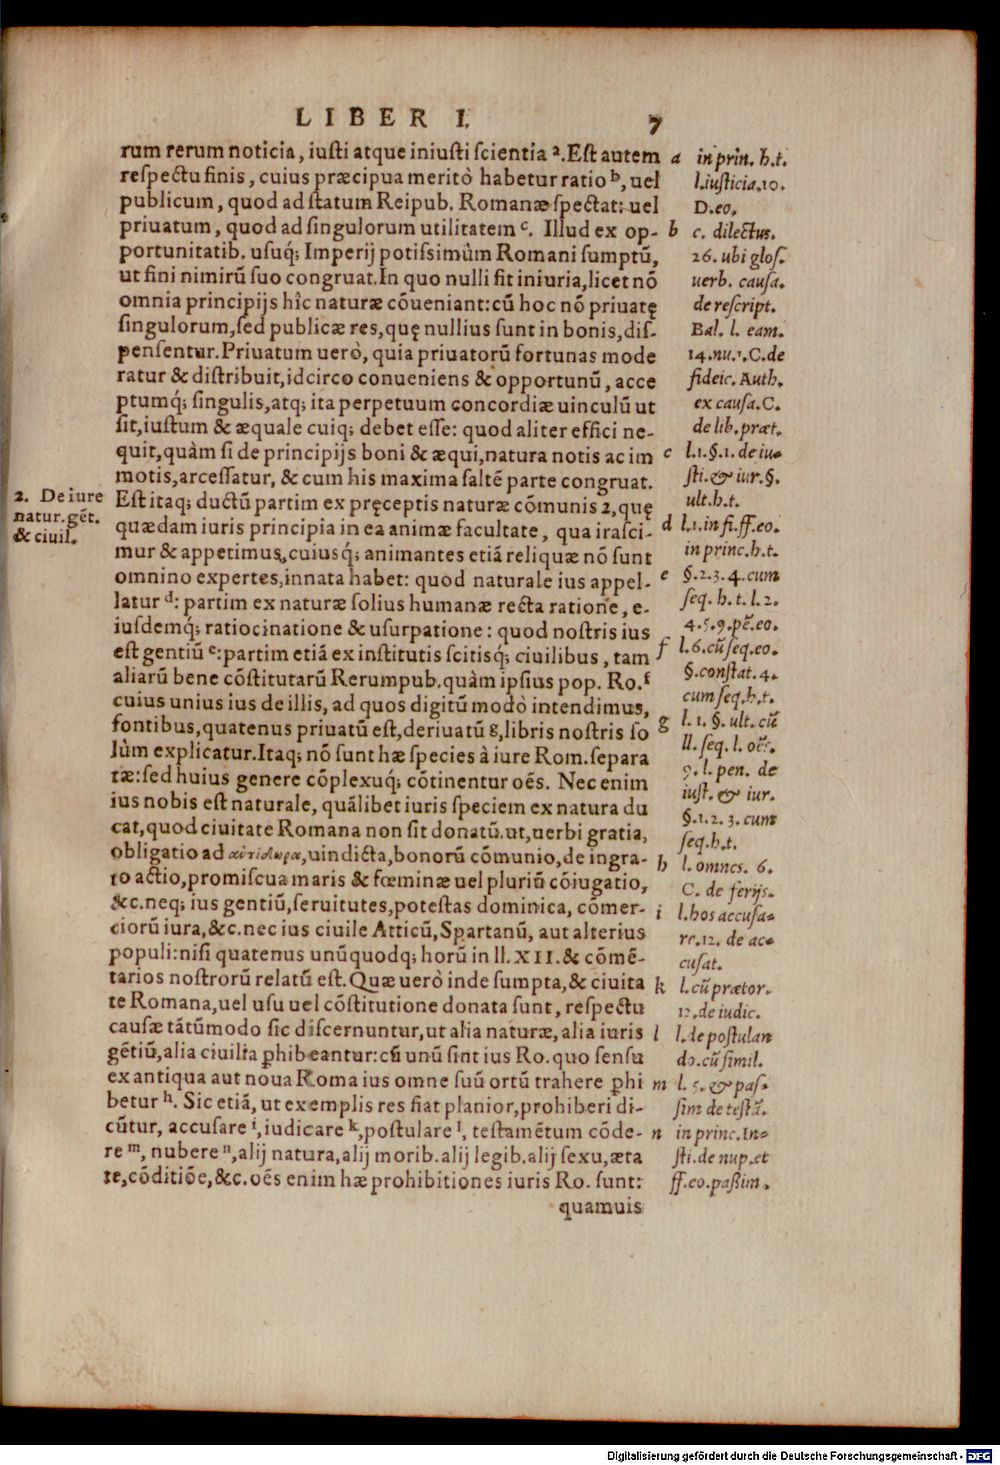 LIBER I. 7
rum rerum noticia, iusti atque iniusti scientia ᵃ. Est autem
respectu finis, cuius præcipua meritò habetur ratio ᵇ, uel
publicum, quod ad statum Reipub. Romanæ spectat: uel
priuatum, quod ad singulorum utilitatem ᶜ. Illud ex op-
portunitatib. usuq́; Imperij potissimùm Romani sumptũ,
ut fini nimirũ suo congruat. In quo nulli fit iniuria, licet nõ
omnia principijs hîc naturæ cõueniant: cũ hoc nõ priuatę
singulorum, sed publicæ res, quę nullius sunt in bonis, dis-
pensentur. Priuatum uerò, quia priuatorũ fortunas mode
ratur & distribuit, idcirco conueniens & opportunũ, acce
ptumq́; singulis, atq; ita perpetuum concordiæ uinculũ ut
sit, iustum & æquale cuiq; debet esse: quod aliter effici ne-
quit, quàm si de principijs boni & æqui, natura notis ac im
motis, arcessatur, & cum his maxima saltẽ parte congruat.
2. De iure
natur. gẽt.
& ciuil.
Est itaq; ductũ partim ex pręceptis naturæ cõmunis 2, quę
quædam iuris principia in ea animæ facultate, qua irasci-
mur & appetimus, cuiusq́; animantes etiã reliquæ nõ sunt
omnino expertes, innata habet: quod naturale ius appel-
latur ᵈ: partim ex naturæ solius humanæ recta ratione, e-
iusdemq́; ratiocinatione & usurpatione: quod nostris ius
est gentiũ ᵉ: partim etiã ex institutis scitisq́; ciuilibus, tam
aliarũ bene cõstitutarũ Rerumpub. quàm ipsius pop. Ro. ᶠ
cuius unius ius de illis, ad quos digitũ modò intendimus,
fontibus, quatenus priuatũ est, deriuatũ ᵍ, libris nostris so
lùm explicatur. Itaq; nõ sunt hæ species à iure Rom. separa
tæ: sed huius genere cõplexuq́; cõtinentur oẽs. Nec enim
ius nobis est naturale, quãlibet iuris speciem ex natura du
cat, quod ciuitate Romana non sit donatũ. ut, uerbi gratia,
obligatio ad ἀντίδωρα, uindicta, bonorũ cõmunio, de ingra-
to actio, promiscua maris & fœminæ uel pluriũ cõiugatio,
&c. neq; ius gentiũ, seruitutes, potestas dominica, cõmer-
ciorũ iura, &c. nec ius ciuile Atticũ, Spartanũ, aut alterius
populi: nisi quatenus unũquodq; horũ in ll. XII. & cõmẽ-
tarios nostrorũ relatũ est. Quæ uerò inde sumpta, & ciuita
te Romana, uel usu uel cõstitutione donata sunt, respectu
causæ tãtũmodo sic discernuntur, ut alia naturæ, alia iuris
gẽtiũ, alia ciuilia ꝓhibeantur: cũ unũ sint ius Ro. quo sensu
ex antiqua aut noua Roma ius omne suũ ortũ trahere ꝓhi
betur ʰ. Sic etiã, ut exemplis res fiat planior, prohiberi di-
cũtur, accusare ⁱ, iudicare ᵏ, postulare ˡ, testamẽtum cõde-
re ᵐ, nubere ⁿ, alij natura, alij morib. alij legib. alij sexu, æta
te, cõditiõe, &c. oẽs enim hæ prohibitiones iuris Ro. sunt:
quamuis
a in prin. h.t.
l. iusticia. 10.
D. eo.
b c. dilectus.
26. ubi glos.
uerb. causa.
de rescript.
Bal. l. eam.
14. nu. 1. C. de
fideic. Auth.
ex causa. C.
de lib. præt.
c l. 1. §. 1. de iu-
sti. & iur. §.
ult. h.t.
d l. 1. in fi. ff. eo.
in princ. h.t.
e §. 2. 3. 4. cum
seq. h. t. l. 2.
4. 5. 9. pẽ. eo.
f l. 6. cũ seq. eo.
§. constat. 4.
cum seq. h.t.
g l. 1. §. ult. cũ
ll. seq. l. oẽs.
9. l. pen. de
iust. & iur.
§. 1. 2. 3. cum
seq. h.t.
h l. omnes. 6.
C. de ferijs.
i l. hos accusa-
re. 12. de ac-
cusat.
k l. cũ prætor.
12. de iudic.
l l. de postulan
do. cũ simil.
m l. 5. & pas-
sim de testã.
n in princ. In-
sti. de nup. et
ff. eo. paßim.
Digitalisierung gefördert durch die Deutsche Forschungsgemeinschaft - DFG